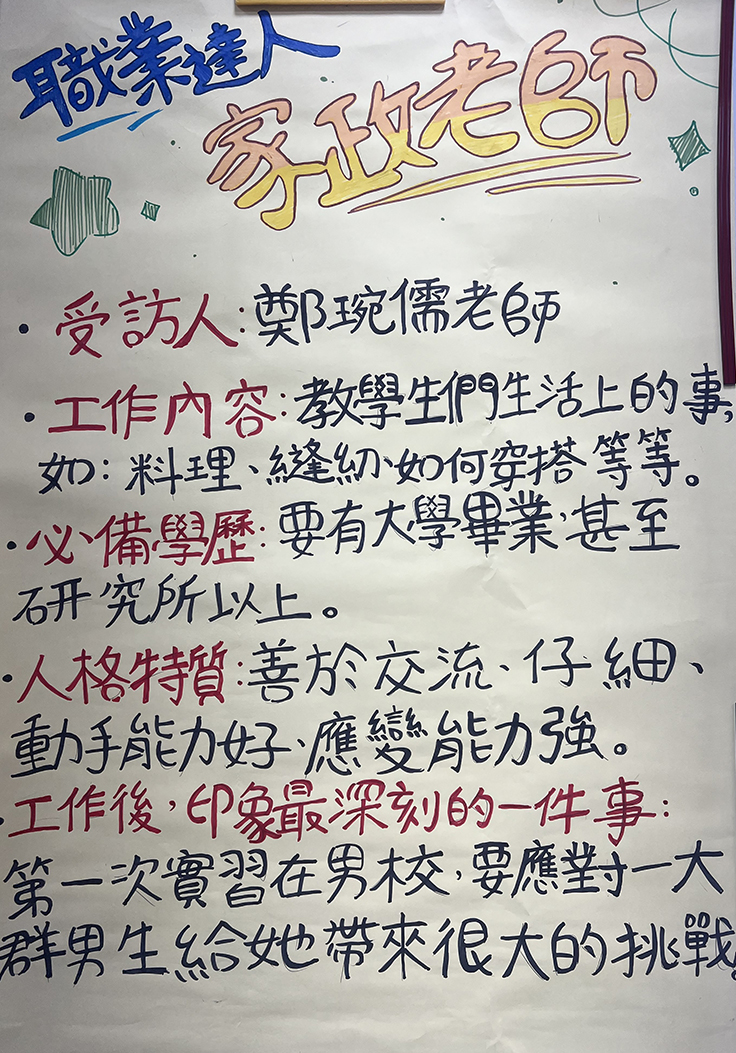 職業達人
家政老師
·受訪人:鄭琬儒老師
·工作內容:教學生們生活上的事,
如:料理、縫紉、如何穿搭等等。
·必備學歷:要有大學畢業,甚至
研究所以上。
·人格特質:善於交流、仔細、
動手能力好、應變能力強。
·工作後,印象最深刻的一件事:
第一次實習在男校,要應對一大
群男生給她帶來很大的挑戰。